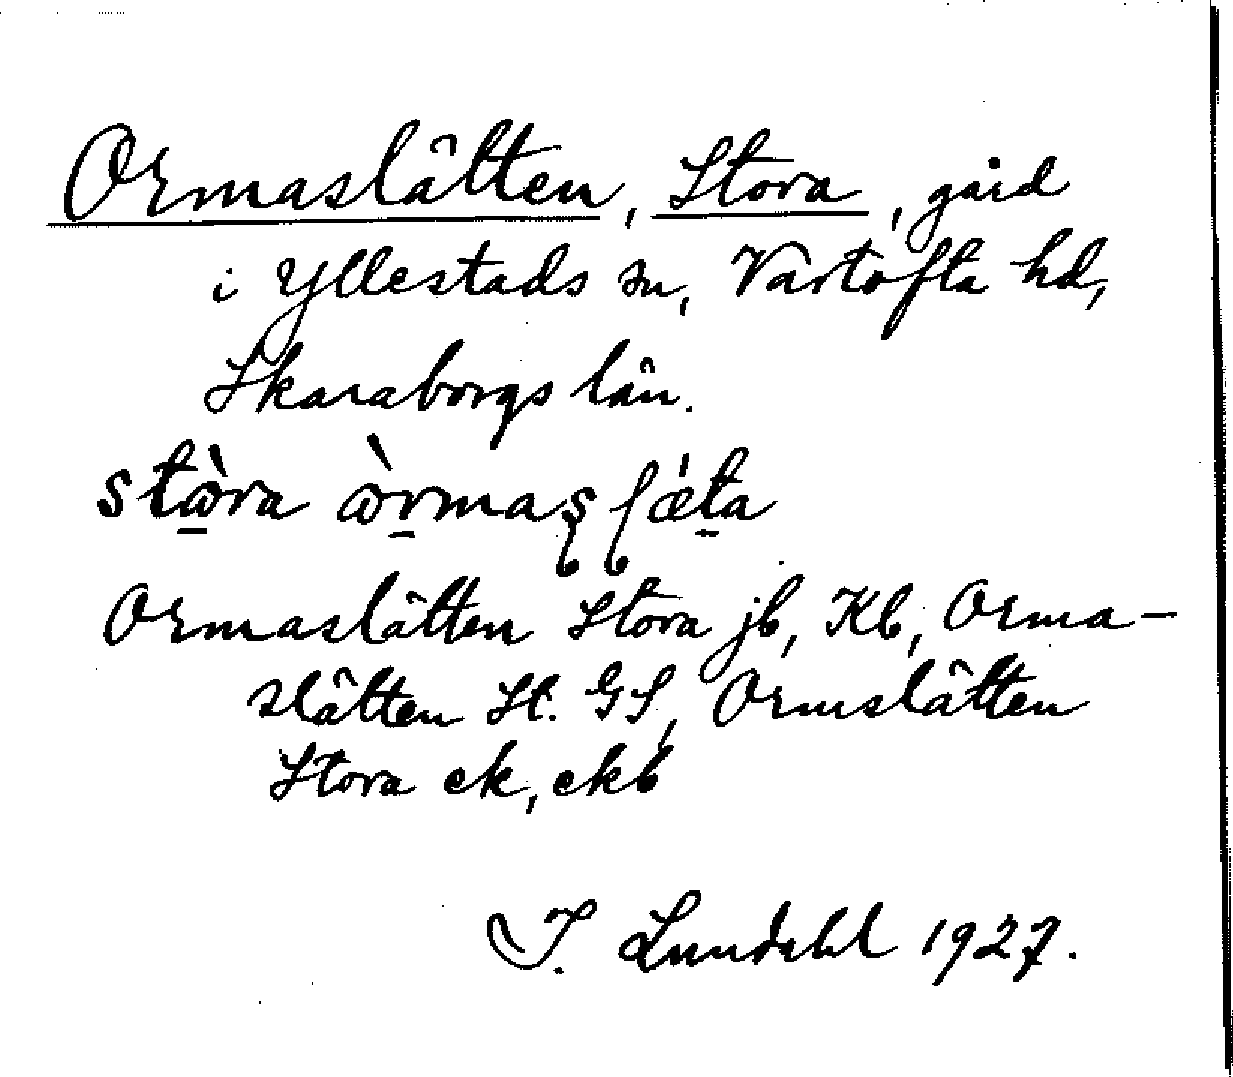 Ormaslätten, Stora, gård
i Yllestads sn, Vartofta hd,
Skaraborgs län.
Ormaslätten Stora jb, Kb, Orma-
slätten St. GS, Ormslätten
Stora ek, ekb
I. Lundahl 1927.